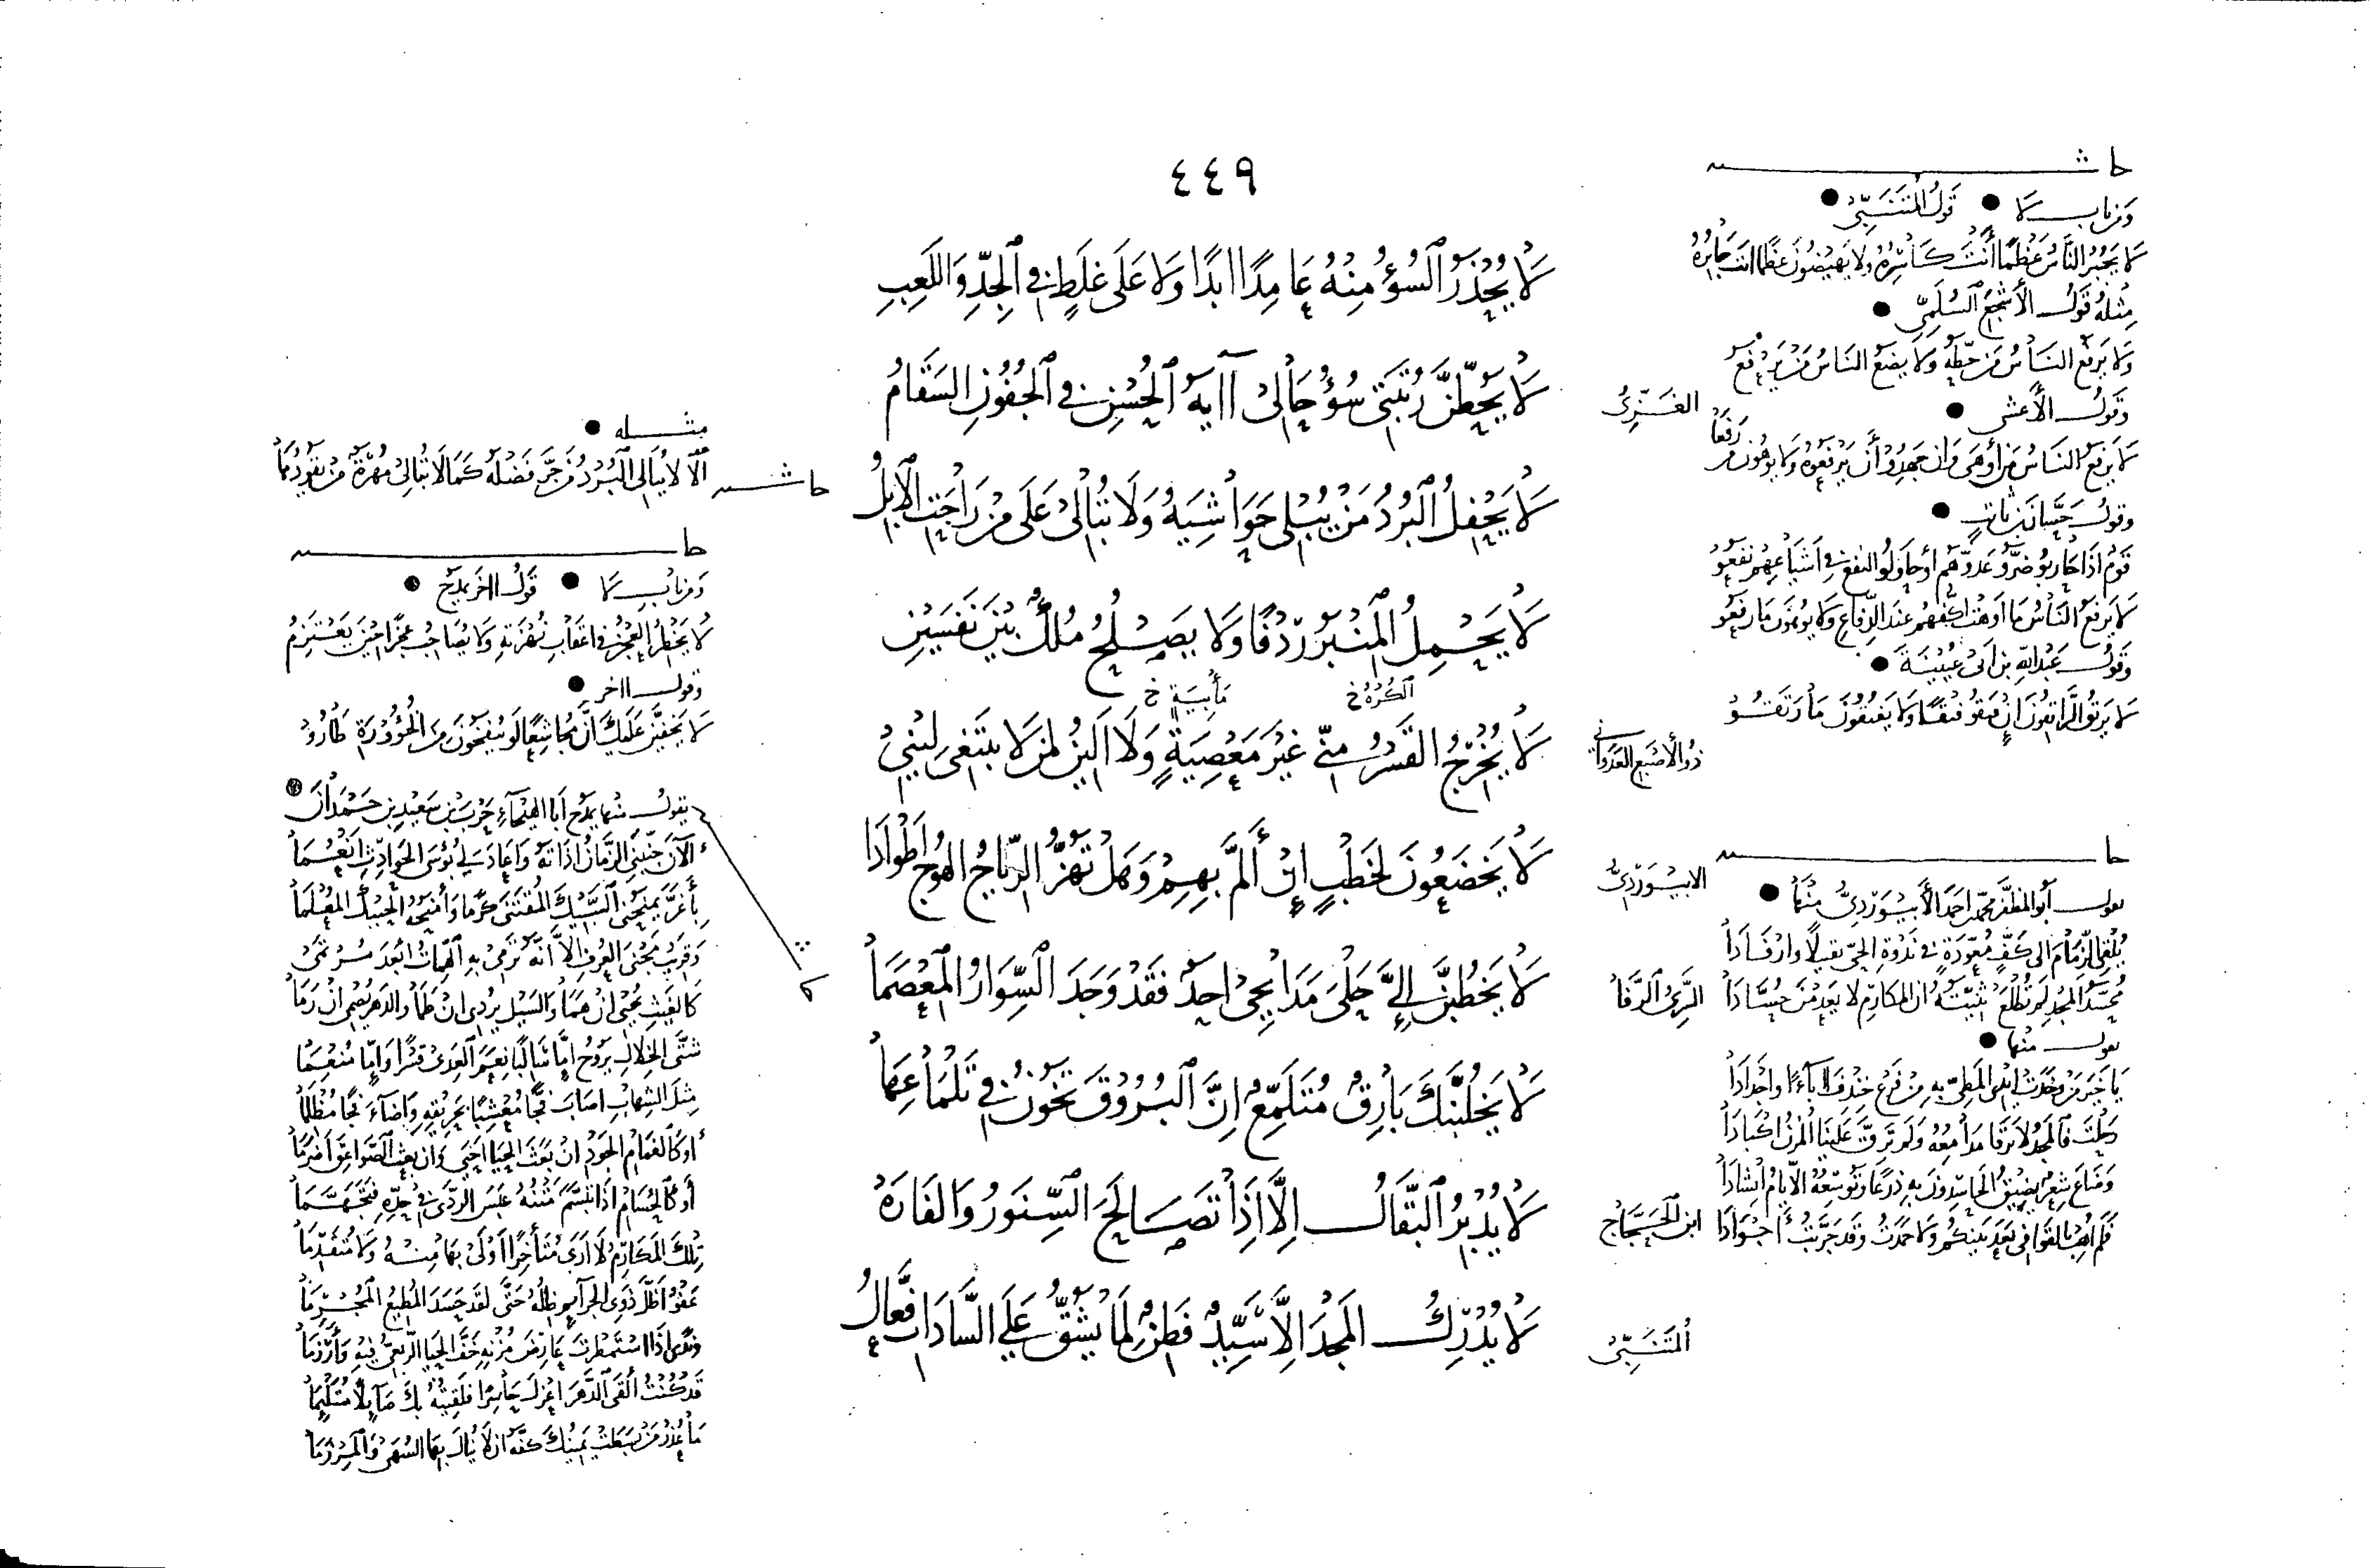 ٤٤٩
لَا يُحْذَرُ السُوْءُ مِنْهُ عَامِدًا ابدًا وَلَا عَلَى غَلَطٍ فِي الجِدِّ وَاللَعِبِ
لَا يَحُطَّنَّ رُتْبَتِي سُوْءُ حَالِي آيَةُ الحُسْنِ فِي الجُفُوْنِ السَقَامُ
لَا يَحْفِلُ البُرْدُ مَنْ يُبْلِي حَوَاشِيَهُ وَلَا تُبَالِيْ عَلَى مَنْ رَاحَتِ الإبِلُ
لَا يَحْمِلُ المِنْبَرُ رِدْفًا وَلَا يَصْلُحُ مُلْكٌ بَيْنَ نَفْسَيْنِ
الكُرْهُ خ
مَأْبِيَةٍ خ
لَا يُخْرِجُ القَسْرُ مِنّي غَيْرَ مَعْصِيَةٍ وَلَا أَلِيْنُ لِمَنْ لَا يَبْتَغِي لِيْنِي
لَا يَخْضَعُوْنَ لِخَطْبٍ إِنْ أَلَمَّ بِهِمْ وَهَلْ تَهُزُّ الرِّيَاحُ الهُوْجُ أَطْوَادَا
لَا يَخْطُبَنَّ إِلَيَّ حَلْيَ مَدَائِحِيْ احَدٌ فَقَدْ وَجَدَ السِّوَارُ المِعْصَمَا
لَا يَخْلُبَنَّكَ بَارِقٌ مُتَلَمِّعٌ إِنَّ البُرُوْقَ تَخُوْنُ فِي تَلْمَاعِهَا
لَا يُدْبِرُ البَقَّالُ إِلَّا إِذَا تَصَالَحَ السِّنَوْرُ وَالفَارَهْ
لَا يُدْرِكُ المَجْدَ إِلَّا سَيِّدٌ فَطِنٌ لِمَا يَشُقُّ عَلَى السَّادَاتِ فَعَّالُ
الغَزِّيُ
ذُو الأصْبَعِ العَدَوَانِي
الابيْوَرْدِيُّ
السَّرِيُّ الرَّفَا
ابن الحَجَّاجِ
المُتَنَبِّيْ
حاشـ
وَمِنْ بَابِ لَا ● قَوْلُ المُتَنَبِّيْ ●
لَا يَجْبُرُ النَّاسُ عَظْمًا أَنْتَ كَاسِرُهُ وَلَا يَهِيْضُونَ عَظْمًا انتَ جَابِرُهُ
مِثْلُهُ قَوْلُ الأَشْجَعِ السُلَمِيِّ ●
وَلَا يَرْفَعُ النَّاسُ مَنْ حَطَّهُ وَلَا يَضَعُ النَّاسُ مَنْ يَرْفَعُ
وَقَوْلُ الأعْشَى ●
لَا يَرْفَعُ النَّاسُ مَا أَوْهَى وَإنْ جَهِدُوْا أَنْ يَرْفَعُوْهُ وَلَا يُوْهُوْنَ مَا رَفَعَا
وَقَوْلُ حَسَّانَ بْنِ ثَابِتٍ ●
قَوْمٌ إِذَا حَارَبُوْا ضَرُّوْا عَدُوَّهُمُ أَوْ حَاوَلُوا النَّفْعَ فِي أَشْيَاعِهِمْ نَفَعُوْا
لَا يَرْفَعُ النَّاسُ مَا أَوْهَتْ أكُفُّهُمْ عِنْدَ الدِّفَاعِ وَلَا يُوْهُوْنَ مَا رَفَعُوْا
وَقَوْلُ عَبْدِ اللهِ بن أَبِي عُيَيْنَةَ ●
لَا يَرْتُقُ الرَّاتِقُوْنَ إِنْ فَتَقُوْا فَتْقًا وَلَا يَفْتُقُوْنَ مَا رَتَقُوْا
حا
يقول أَبُو المُظَفَّر مُحَمَّد بن احمَدَ الأَبِيْوَرْدِيُّ مِنْهَا ●
يُلْقِي الزِّمَامَ إِلَى كَفٍّ مُعَوَّدَةٍ فِي نَدْوَةِ الحَيِّ تَقْبِيْلًا وَإِرْفَادَا
مُحَسَّدُ المَجْدِ لَمْ تَطْلُعْ ثَنِيَّتَهُ إِنَّ المَكَارِمَ لَا يَعْدِمْنَ حُسَّادَا
يقول منْهَا ●
يَا خَيْرَ مَنْ وَخَدَتْ أَيْدِي المَطِيِّ بِهِ مِنْ فَرْعِ خِنْدَفَ آبَاءً وَأَجْدَادَا
رَحَلْتَ فَالمَجْدُ لَا تَرْقَا مَدَامِعُهُ وَلَمْ تَرِقَّ عَلَيْنَا المُزْنُ أَكْبَادَا
وَضَاعَ شِعْرٌ يَضِيْقُ الحَاسِدُوْنَ بِهِ ذَرْعًا وَتُوْسِعُهُ الأَيَّامُ إِنْشَادَا
فَلَمْ أَهِبْ بِالقَوَافِي بَعْدَ بَيْنِكُمُ وَلَا حَمِدْتُ وَقَدْ جَرَّبْتُ أَجْوَادَا
مثـله ●
أَلَا لَا يُبَالِي البُرْدُ مَنْ جَرَّ فَضْلَهُ كَمَا لَا تُبَالِيْ مُهْرَةٌ مَنْ يَقُوْدُهَا
حاشـ
حا
وَمِنْ بَابِ لَا ● قَوْلُ آخَرَ يمْدَحُ ●
لَا يَخْطِرُ العَجْزُ فِي أعْقَابِ نُهْزَتِهِ وَلَا يُصَاحِبُ عَجْزًا حِيْنَ يَعْتَزِمُ
وَقَوْلُ اآخر ●
لَا يَخْفَيَنَّ عَلَيْكَ أَنَّ مُجَاشِعًا لَوْ يُنْفَخُوْنَ مِنَ الخُؤُوْرَةِ طَارُوْا
يَقُوْلُ مِنْهَا يمْدَحُ أَبَا الهَيْجَاءِ حَرْبَ بْنَ سَعِيْدِ بن حَمْدَانَ
الآنَ جَنَّبَنِي الزَّمَانُ أَذَاتَهُ وَأَعَادَ لِي بُؤْسَى الحَوَادِثِ أَنْعُمَا
بِأَغَرَّ يَمْنَحُنِي السَّبِيْكَ المُقْتَنَى كَرَمًا وَأَمْنَحُهُ الحَبِيْكَ المُعْلَمَا
وَقَرِيْبُ مَجْنَى العُرْفِ إِلَّا أَنَّهُ تَرْمِيْ بِهِ الهِمَّاتُ أَبْعَدَ مُرْتَمَى
كَالغَيْثِ يُحْيِي إِنْ هَمَا وَالسَيْلِ يُرْدِي إِنْ طَمَا وَالدَهْرِ يُصْمِي إِنْ رَمَا
شَتَّى الخِلَالِ يَرُوْحُ إِمَّا سَالِبًا نِعَمَ العِدَى قَسْرًا وَإِمَّا مُنْعِمَا
مِثْلَ الشِهَابِ أَصَابَ فَجًّا مُعْشِبًا بِحَرِيْقِهِ وَأَضَاءَ فَجًّا مُظْلِمَا
أَوْ كَالغَمَامِ الجَوْدِ إِنْ بَعَثَ الحَيَا أَحْيَى وَإِنْ بَعَثَ الصَّوَاعِقَ أَضْرَمَا
أَوْ كَالحُسَامِ إِذَا تَبَسَّمَ مَتْنُهُ عَبَسَ الرَّدَى فِي حَدِّهِ فَتَجَهَّمَا
تِلْكَ المَكَارِمُ لَا أَرَى مُتَأَخِّرًا أَوْلَى بِهَا مِنْهُ وَلَا مُتَقَدِّمَا
عَفْوٌ أَظَلَّ ذَوِي الجَرَائِمِ ظِلُّهُ حَتَّى لَقَدْ حَسَدَ المُطِيْعُ المُجْرِمَا
وَنَدًى إِذَا اسْتَمْطَرْتَ عَارِضَ مُزْنِهِ حَنَّ الحَيَا الرِّبْعِيُّ فِيْهِ وَأَرْزَمَا
قَدْ كُنْتُ أَلْقَى الدَّهْرَ أَعْزَلَ حَاسِرًا فَلَقِيْتُهُ بِكَ صَائِلًا مُسْتَلْئِمَا
مَا عُذْرُ مَنْ بَسَطَتْ يَمِيْنُكَ كَفَّهُ أَنْ لَا يَنَالَ بِهَا السُهَى وَالمِرْزَمَا